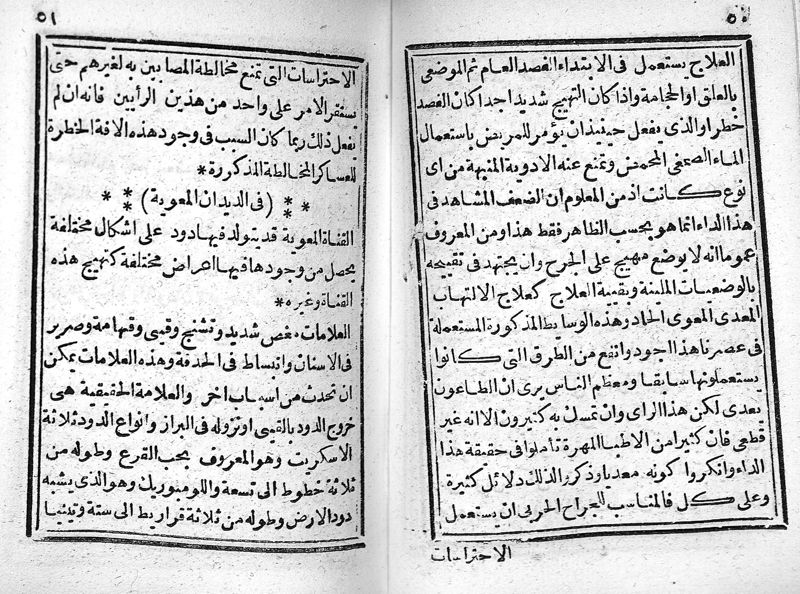 ٥٠
العلاج يستعمل فى الابتداء الفصد العام ثم الموضعى
بالعلق او الحجامة واذا كان التهيج شديدا جدا كان الفصد
خطرا والذى يفعل حينئذ ان يؤمر للمريض باستعمال
الماء الصمغى المحمض وتمنع عنه الادوية المنبهة من اى
نوع كانت اذ من المعلوم ان الضعف المشاهد فى
هذا الداء انما هو بحسب الظاهر فقط هذا ومن المعروف
عموما انه لا يوضع مهيج على الجرح وان يجتهد فى تقييحه
بالوضعيات الملينة وبقية العلاج كعلاج الالتهاب
المعدى المعوى الحاد وهذه الوسايط المذكورة المستعملة
فى عصرنا هذا اجود وانفع من الطرق التى كانوا
يستعملونها سابقا ومعظم الناس يرى ان الطاعون
يعدى لكن هذا الراى وان تمسك به كثيرون الا انه غير
قطعى فان كثيرا من الاطبا المهرة تأملوا فى حقيقة هذا
الداء وانكروا كونه معديا وذكروا لذلك دلائل كثيرة
وعلى كل فالمناسب للجراح الحربى ان يستعمل
الاحتراسات
٥١
الاحتراسات التى تمنع مخالطة المصابين به لغيرهم حتى
يستقر الامر على واحد من هذين الرأيين فانه ان لم
يفعل ذلك ربما كان السبب فى وجود هذه الافة الخطرة
للعساكر المخالطة المذكورة *
* * * * (فى الديدان المعوية) * * * *
القناة المعوية قد يتولد فيها دود على اشكال مختلفة
يحصل من وجودها فيها اعراض مختلفة كتهيج هذه
القناة وغيره *
العلامات مغص شديد وتشنج وقيى وقهامة وصرير
فى الاسنان وانبساط فى الحدقة وهذه العلامات يمكن
ان تحدث من اسباب اخر والعلامة الحقيقية هى
خروج الدود بالقيى او نزوله فى البراز وانواع الدود ثلاثة
الاسكريت وهو المعروف بحب القرع وطوله من
ثلاثة خطوط الى تسعة واللومبوريك وهو الذى يشبه
دود الارض وطوله من ثلاثة قراريط الى ستة وتينيا